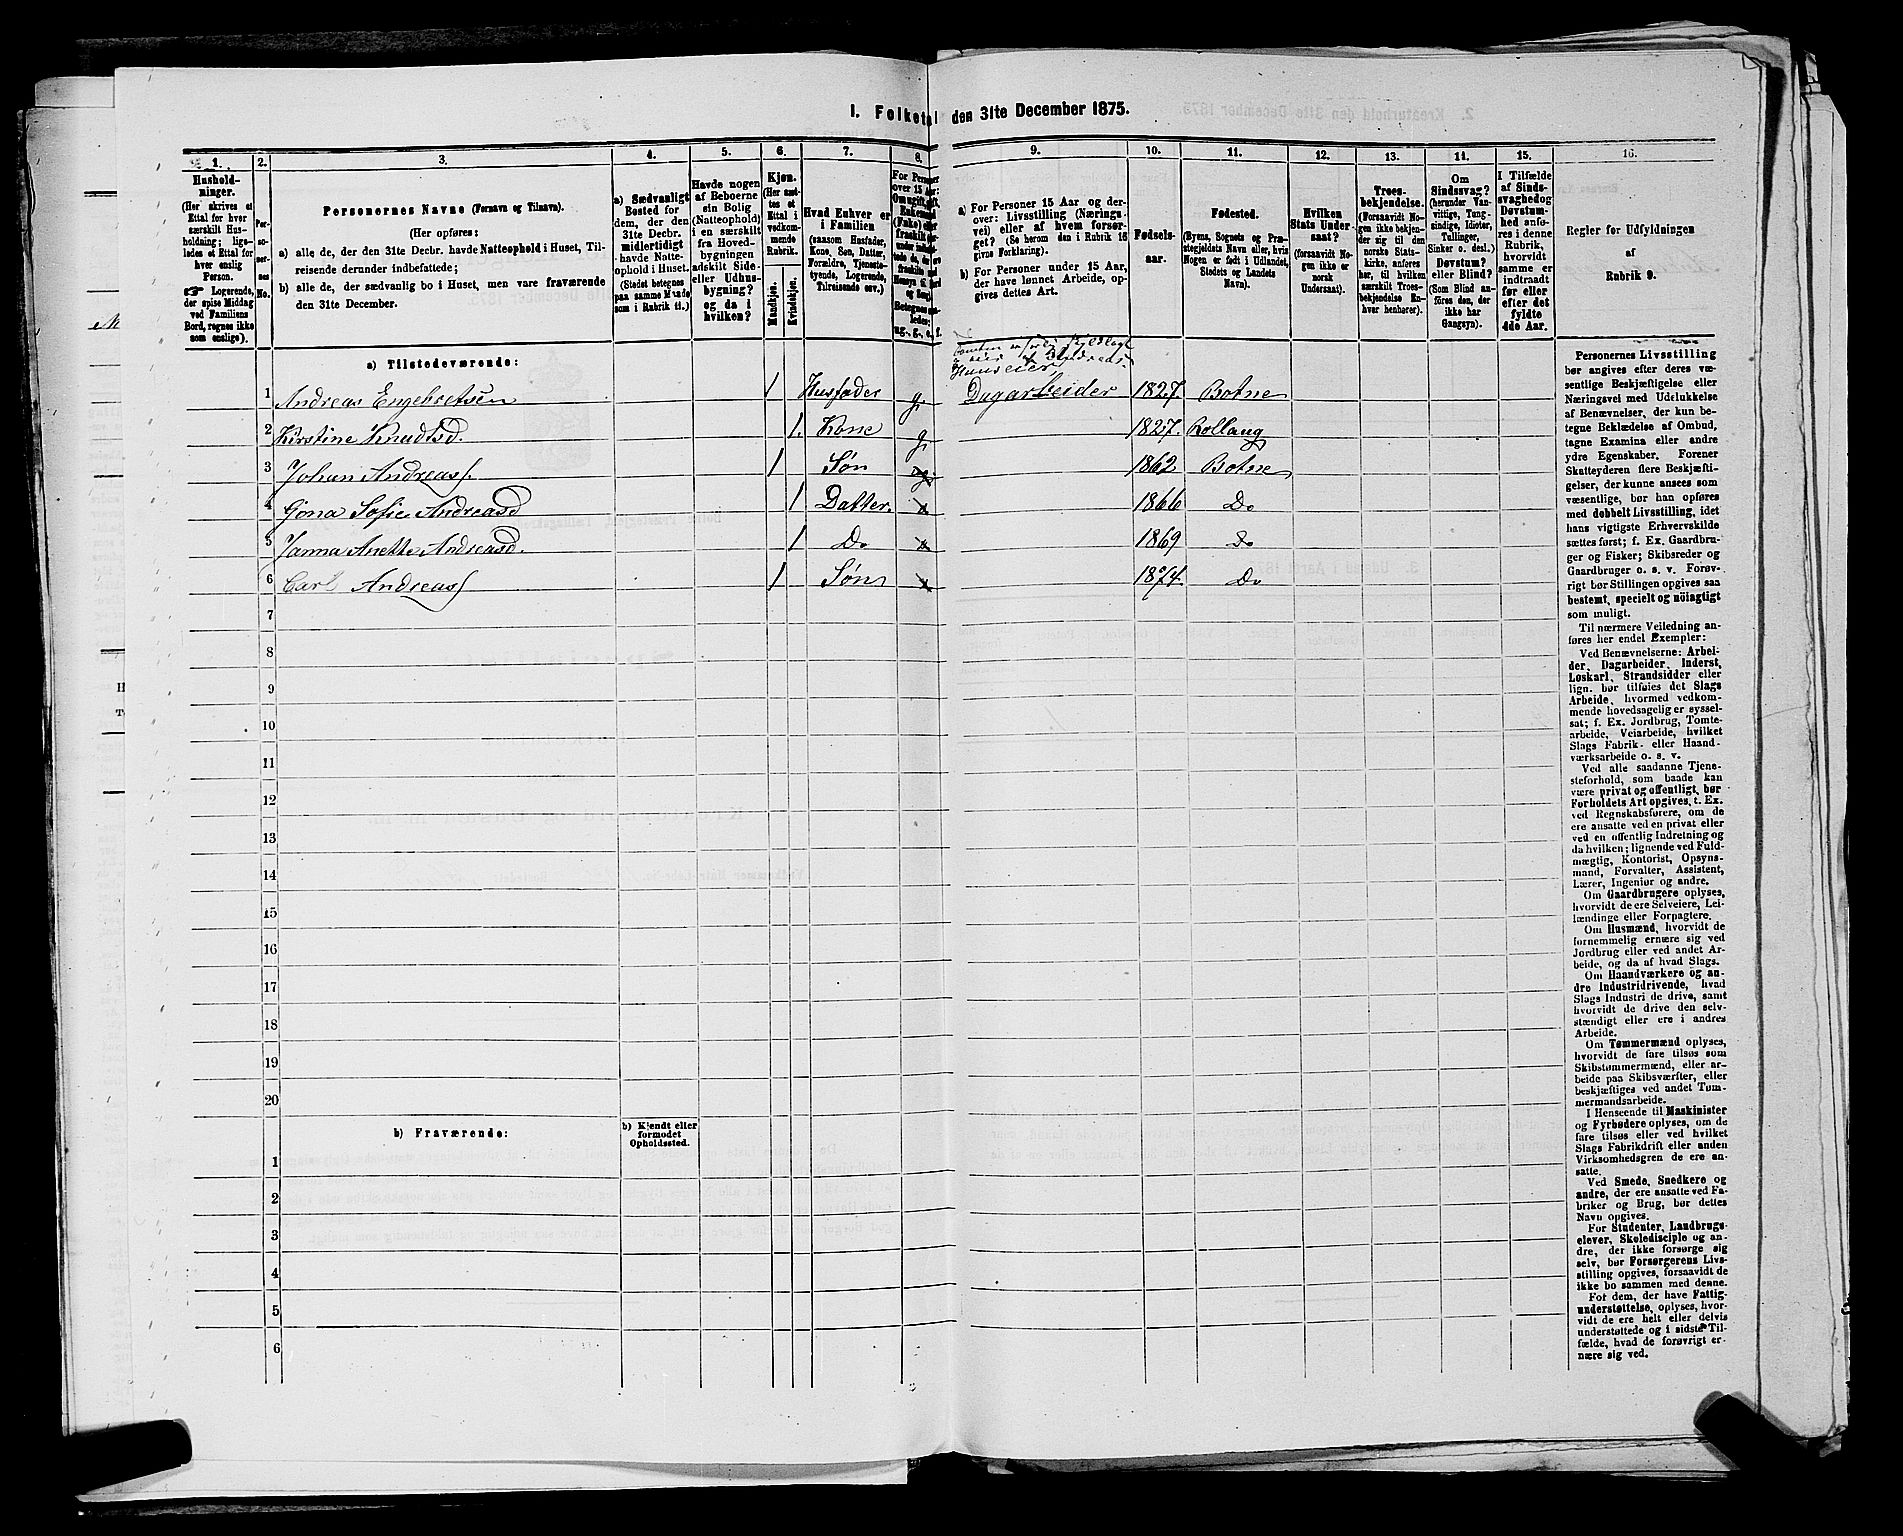 I. Folketal den 31te December 1875.
1. 2. 3. 4. 5. 6. 7. 8. 9. 10. 11. 12. 13. 14. 15. 16.
Hushold-
ninger.
(Her skrives et
Ettal for hver
særskilt Hus-
holdning; lige-
ledes et Ettal for
hver enslig
Person.
☞ Logerende,
der spise Middag
ved Familiens
Bord, regnes ikke
som enslige).
Per-
so-
ner-
nes
No.
Personernes Navne (Fornavn og Tilnavn).
(Her opføres:
a) alle de, der den 31te Decbr. havde Natteophold i Huset, Til-
reisende derunder indbefattede;
b) alle de, der sædvanlig bo i Huset, men vare fraværende
den 31te December.
a) Sædvanligt
Bosted for
dem, der den
31te Decbr.
midlertidigt
havde Natte-
ophold i Huset.
(Stedet betegnes
paa samme Maade
som i Rubrik 11.)
Havde nogen
af Beboerne
sin Bolig
(Natteophold)
i en særskilt
fra Hoved-
bygningen
adskilt Side-
eller Udhus-
bygning?
og da i
hvilken?
Kjøn.
(Her sæt-
tes et
Ettal i
vedkom-
mende
Rubrik.
Mandkjøn.
Kvindekjøn.
Hvad Enhver er
i Familien
(saasom Husfader,
Kone, Søn, Datter,
Forældre, Tjeneste-
tyende, Logerende,
Tilreisende osv.)
For Personer
over 15 Aar:
a) For Personer 15 Aar og der-
over: Livsstilling (Nærings-
vei) eller af hvem forsør-
get? (Se herom den i Rubrik 16
givne Forklaring).
b) For Personer under 15 Aar,
der have lønnet Arbeide, op-
gives dettes Art.
Fødsels-
aar.
Fødested.
(Byens, Sognets og Præ-
stegjeldets Navn eller, hvis
Nogen er født i Udlandet,
Stedets og Landets
Navn).
Hvilken
Stats Under-
saat?
(forsaavidt No-
gen ikke er
norsk
Undersaat).
Troes-
bekjendelse.
(Forsaavidt No-
gen ikke bekjen-
der sig til den
Norske Stats-
kirke, anføres
her, til hvilken
særskilt Troes-
bekjendelse En-
hver henhører).
Om
Sindssvag?
(herunder Van-
vittige, Tung-
sindige, Idioter,
Tullinger,
Sinker o. desl.)
Døvstum?
eller Blind?
(Som Blind an-
føres den, der
ikke har
Gangsyn).
I Tilfælde
af Sinds-
svaghed og
Døvstum-
hed anfø-
res i denne
Rubrik,
hvorvidt
samme er
indtraadt
før eller
efter det
fyldte
4de Aar.
Regler for Udfyldningen
af
Rubrik 9.
a) Tilstedeværende:
Huuseier
1 Andreas Engebretsen 1 Husfader g. Dagarbeider 1827. Botne
2 Kirstine Knudtsd. 1. Kone g. 1827. Rollaug
3 Johan Andreass. 1 Søn 1862 Botne
4 Gona Sofie Andreasd 1 Datter. 1866 Do
5 Janna Anette Andreasd. 1 Do 1869 Do
6 Carl Andreass 1 Søn 1874. Do
7
8
9
10
11
12
13
14
15
16
17
18
19
20
b) Fraværende:
b) Kjendt eller
formodet
Opholdssted.
1
2
3
4
5
6
Personernes Livsstilling
bør angives efter deres væ-
sentlige Beskjæftigelse eller
Næringsvei med Udelukkelse
af Benævnelser, der kun be-
tegne Beklædelse af Ombud,
tagne Examina eller andre
ydre Egenskaber. Forener
Skatteyderen flere Beskjæfti-
gelser, der kunne ansees som
væsentlige, bør han opføres
med dobbelt Livsstilling, idet
hans vigtigste Erhvervskilde
sættes først; f. Ex. Gaardbru-
ger og Fisker; Skibsreder og
Gaardbruger o. s. v. Forøv-
rigt bør Stillingen opgives saa
bestemt, specielt og nøiagtigt
som muligt.
Til nærmere Veiledning an-
føres her endel Exempler:
Ved Benævnelserne: Arbei-
der, Dagarbeider, Inderst,
Løskarl, Strandsidder eller
lign. bør tilføies det Slags
Arbeide, hvormed vedkom-
mende hovedsagelig er syssel-
sat; f. Ex. Jordbrug, Tomte-
arbeide, Veiarbeide, hvilket
Slags Fabrik- eller Haand-
værksarbeide o. s. v.
Ved alle saadanne Tjene-
steforhold, som baade kan
være privat og offentligt, bør
Forholdets Art opgives, t. Ex.
ved Regnskabsførere, om de
ere ansatte ved en privat eller
ved en offentlig Indretning og
da hvilken; lignende ved Fuld-
mægtig, Kontorist, Opsyns-
mand, Forvalter, Assistent,
Lærer, Ingeniør og andre.
Om Gaardbrugere oplyses,
hvorvidt de ere Selveiere, Lei-
lændinge eller Forpagtere.
Om Husmænd, hvorvidt de
fornemmelig ernære sig ved
Jordbrug eller ved andet Ar-
beide, og da af hvad Slags.
Om Haandværkere og an-
dre Industridrivende, hvad
Slags Industri de drive, samt
hvorvidt de drive den selv-
stændigt eller ere i andres
Arbeide.
Om Tømmermænd oplyses,
hvorvidt de fare tilsøs som
Skibstømmermænd, eller ar-
beide paa Skibsværfter, eller
beskjæftiges ved andet Tøm-
mermandsarbeide.
I Henseende til Maskinister
og Fyrbødere oplyses, om de
fare tilsøs eller ved hvilket
Slags Fabrikdrift eller anden
Virksomhedsgren de ere an-
satte.
Ved Smede, Snedkere og
andre, der ere ansatte ved Fa-
briker og Brug, bør dettes
Navn opgives.
For Studenter, Landbrugs-
elever, Skoledisciple og an-
dre, der ikke forsørge sig
selv, bør Forsørgerens Livs-
stilling opgives, forsaavidt de
ikke bo sammen med denne.
For dem, der have Fattig-
understøttelse, oplyses, hvor-
vidt de ere helt eller delvis
understøttede og i sidste Til-
fælde, hvad de forøvrigt er-
nære sig ved.